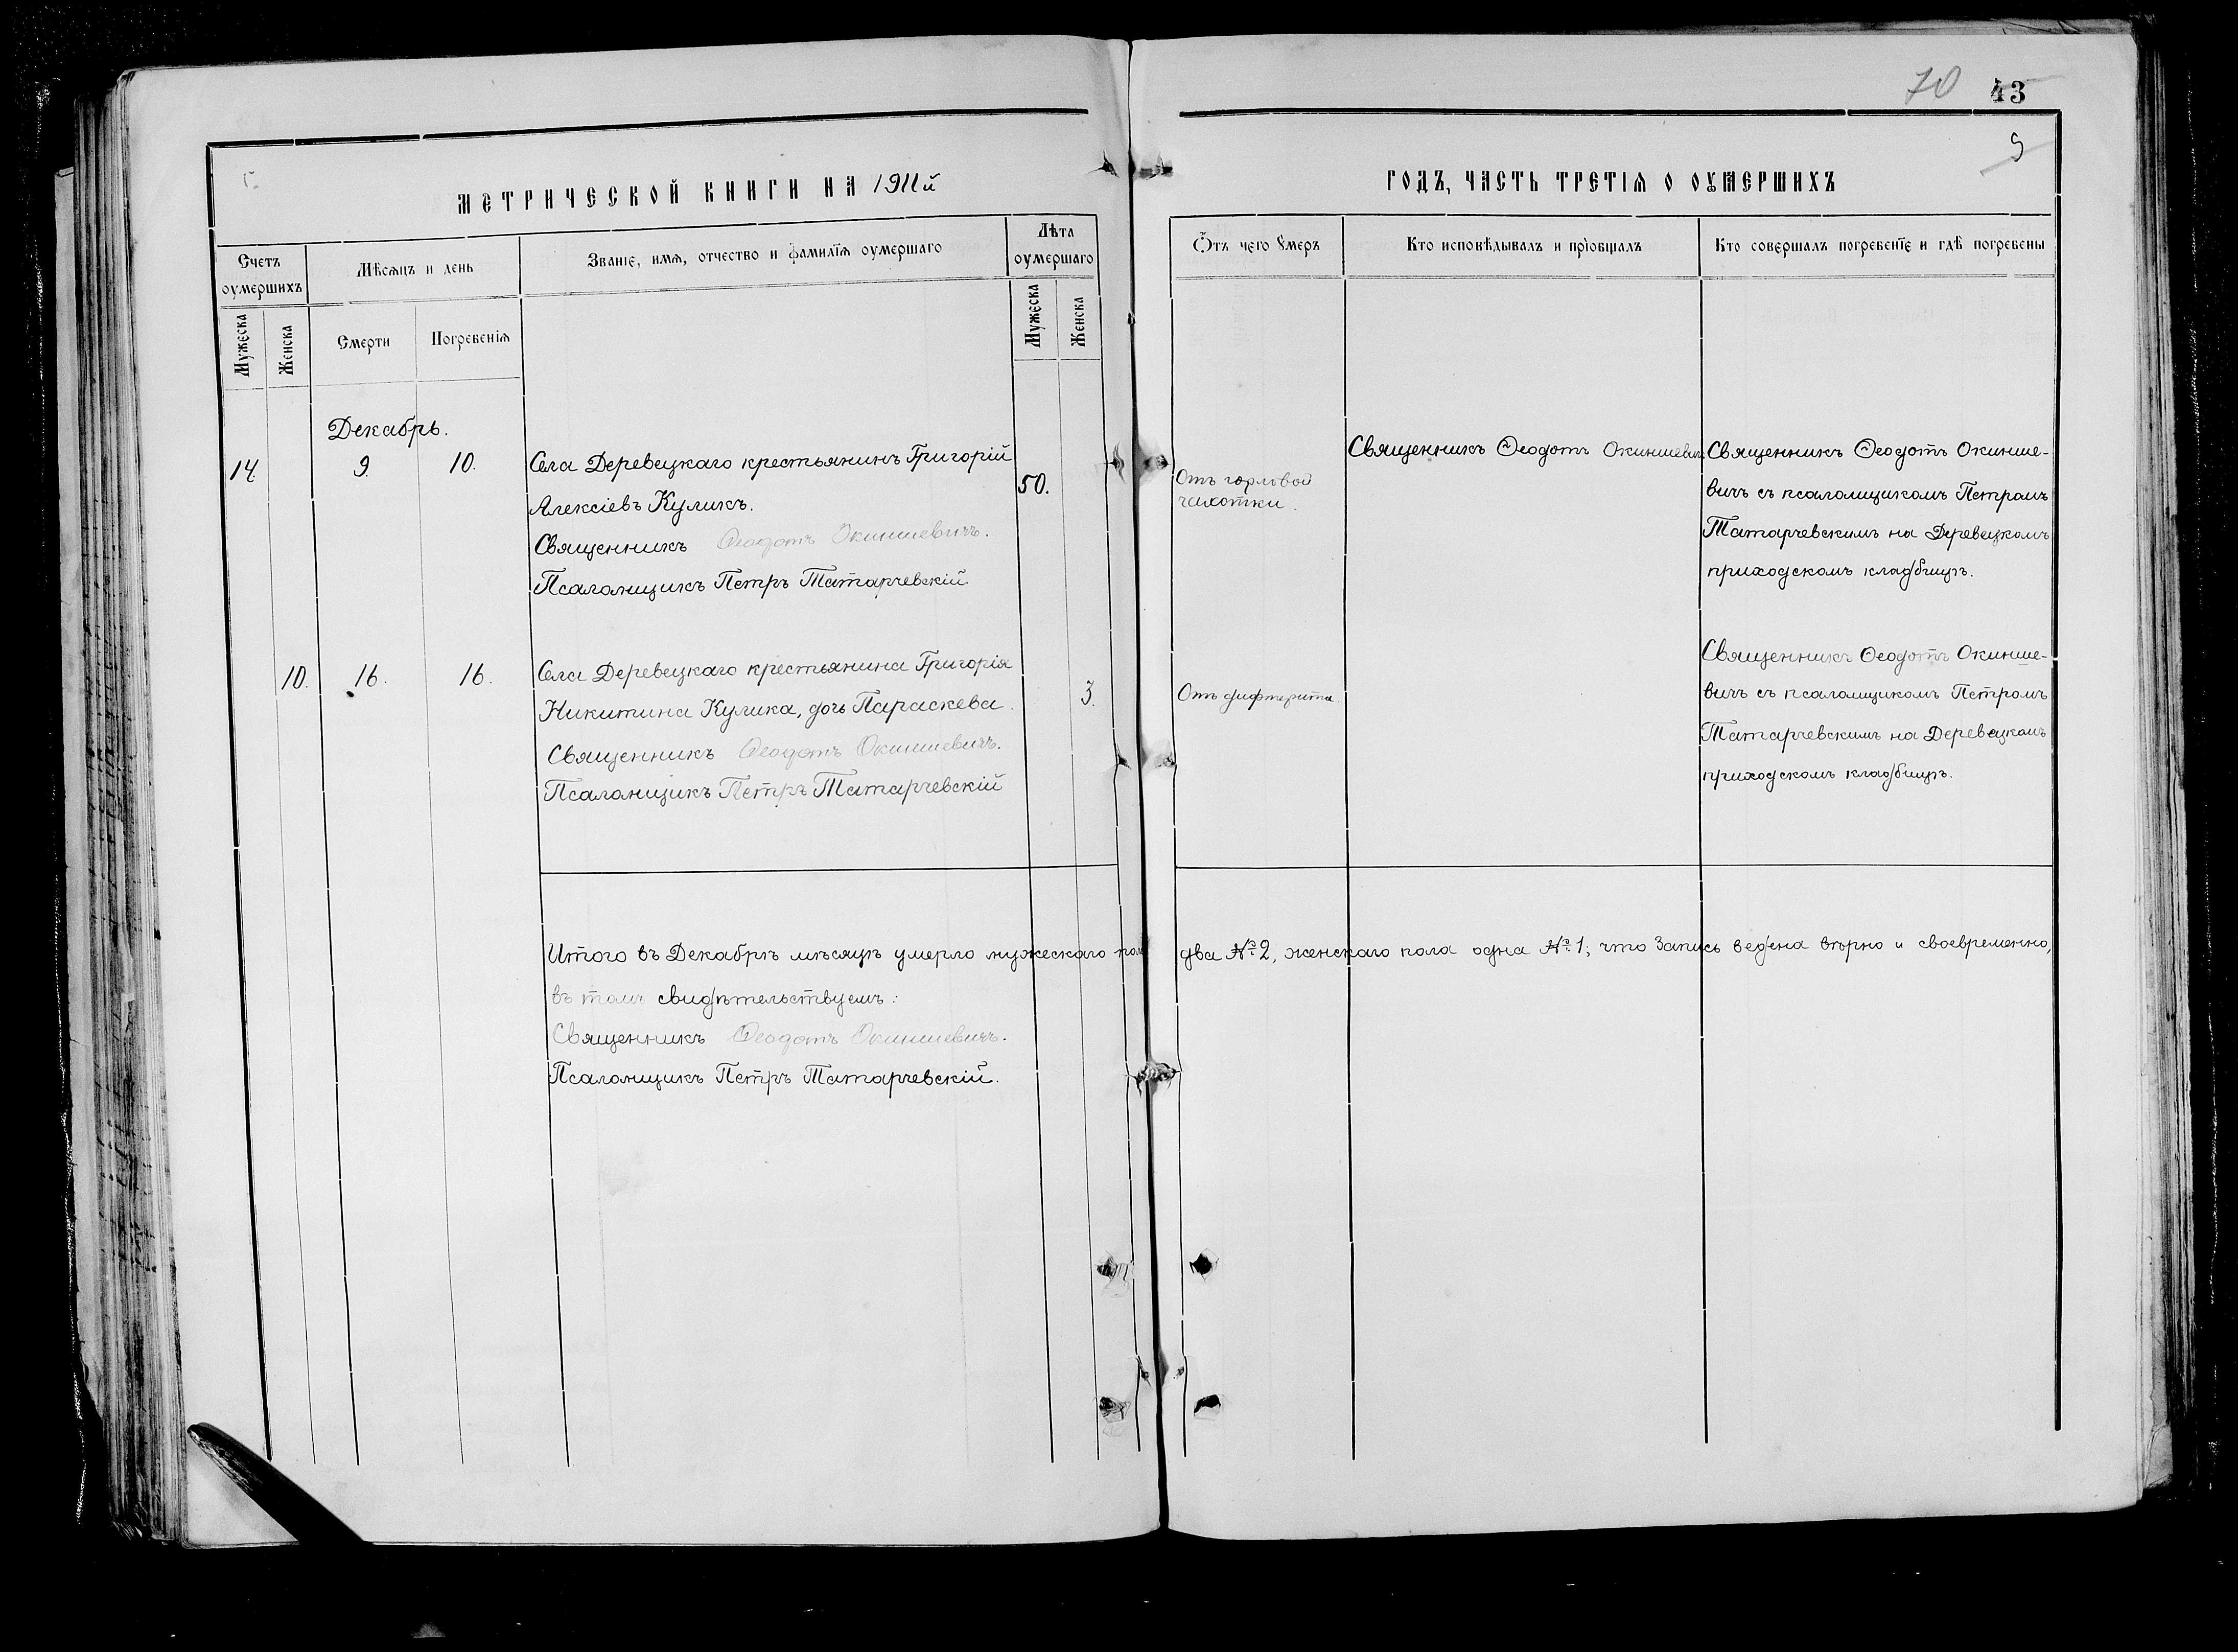 70 43
9
МЕТРИЧЕСКОЙ КНИГИ НА 1911й
ГОДЪ, ЧАСТЬ ТРЕТІѦ О ОУМЕРШИХЪ
Счетъ оумершихъ
Мѣсѧцъ и день
Званіе, имѧ, отчество и фамиліѧ оумершаго
Лѣта оумершаго
Ѿтъ чего Умеръ
Кто исповѣдывалъ и пріобщалъ
Кто совершалъ погребеніе и гдѣ погребены
Мужеска
Женска
Смерти
Погребеніѧ
Мужеска
Женска
Декабрь.
14. 9. 10. Села Деревецкаго крестьянинъ Григорій
Алексіевъ Куликъ.
50.
Священникъ Ѳеодотъ Окиншевичъ.
Псаломщикъ Петръ Татарчевскій
Отъ горловой
чахотки.
Священникъ Ѳеодотъ Окиншевичъ
Священникъ Ѳеодотъ Окинше-
вичъ съ псаломщикомъ Петромъ
Татарчевскимъ на Деревецкомъ
приходскомъ кладбищѣ.
10. 16. 16. Села Деревецкаго крестьянина Григорія
Никитина Кулика, дочь Параскева.
3.
Священникъ Ѳеодотъ Окиншевичъ.
Псаломщикъ Петръ Татарчевскій
Отъ дифтерита
Священникъ Ѳеодотъ Окинше-
вичъ съ псаломщикомъ Петромъ
Татарчевскимъ на Деревецкомъ
приходскомъ кладбищѣ.
Итого въ Декабрѣ мѣсяцѣ умерло мужескаго пола два № 2, женскаго пола одна № 1; что запись ведена вѣрно и своевременно,
въ томъ свидѣтельствуемъ:
Священникъ Ѳеодотъ Окиншевичъ.
Псаломщикъ Петръ Татарчевскій.